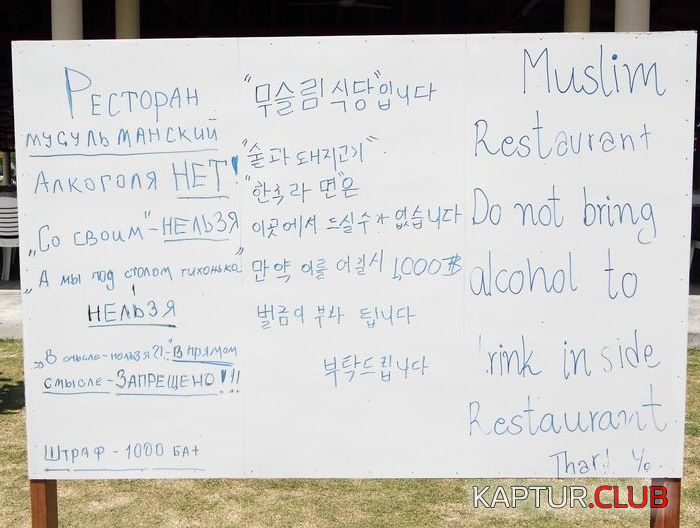 Ресторан
мусульманский
Алкоголя НЕТ!
„Со своим" - НЕЛЬЗЯ
„А мы под столом тихонько"
НЕЛЬЗЯ
„В смысле - нельзя?!" - В прямом
смысле - ЗАПРЕЩЕНО!!!
ШТРАФ - 1000 БАТ
"무슬림 식당"입니다
"술과 돼지고기"
"한국라면"은
이곳에서 드실수가 없습니다
만약 이를 어길시 1,000฿
벌금이 부과 됩니다
부탁드립니다
Muslim
Restaurant
Do not bring
alcohol to
rink inside
Restaurant
KAPTUR.CLUB